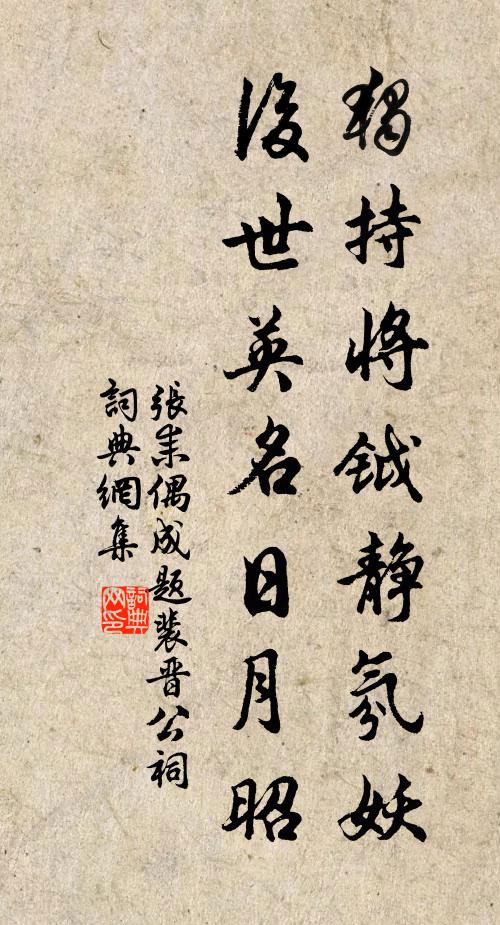 獨持將鉞靜氛妖
後世英名日月昭
張耒偶成題裴晋公祠
詞典網集
詞典网印